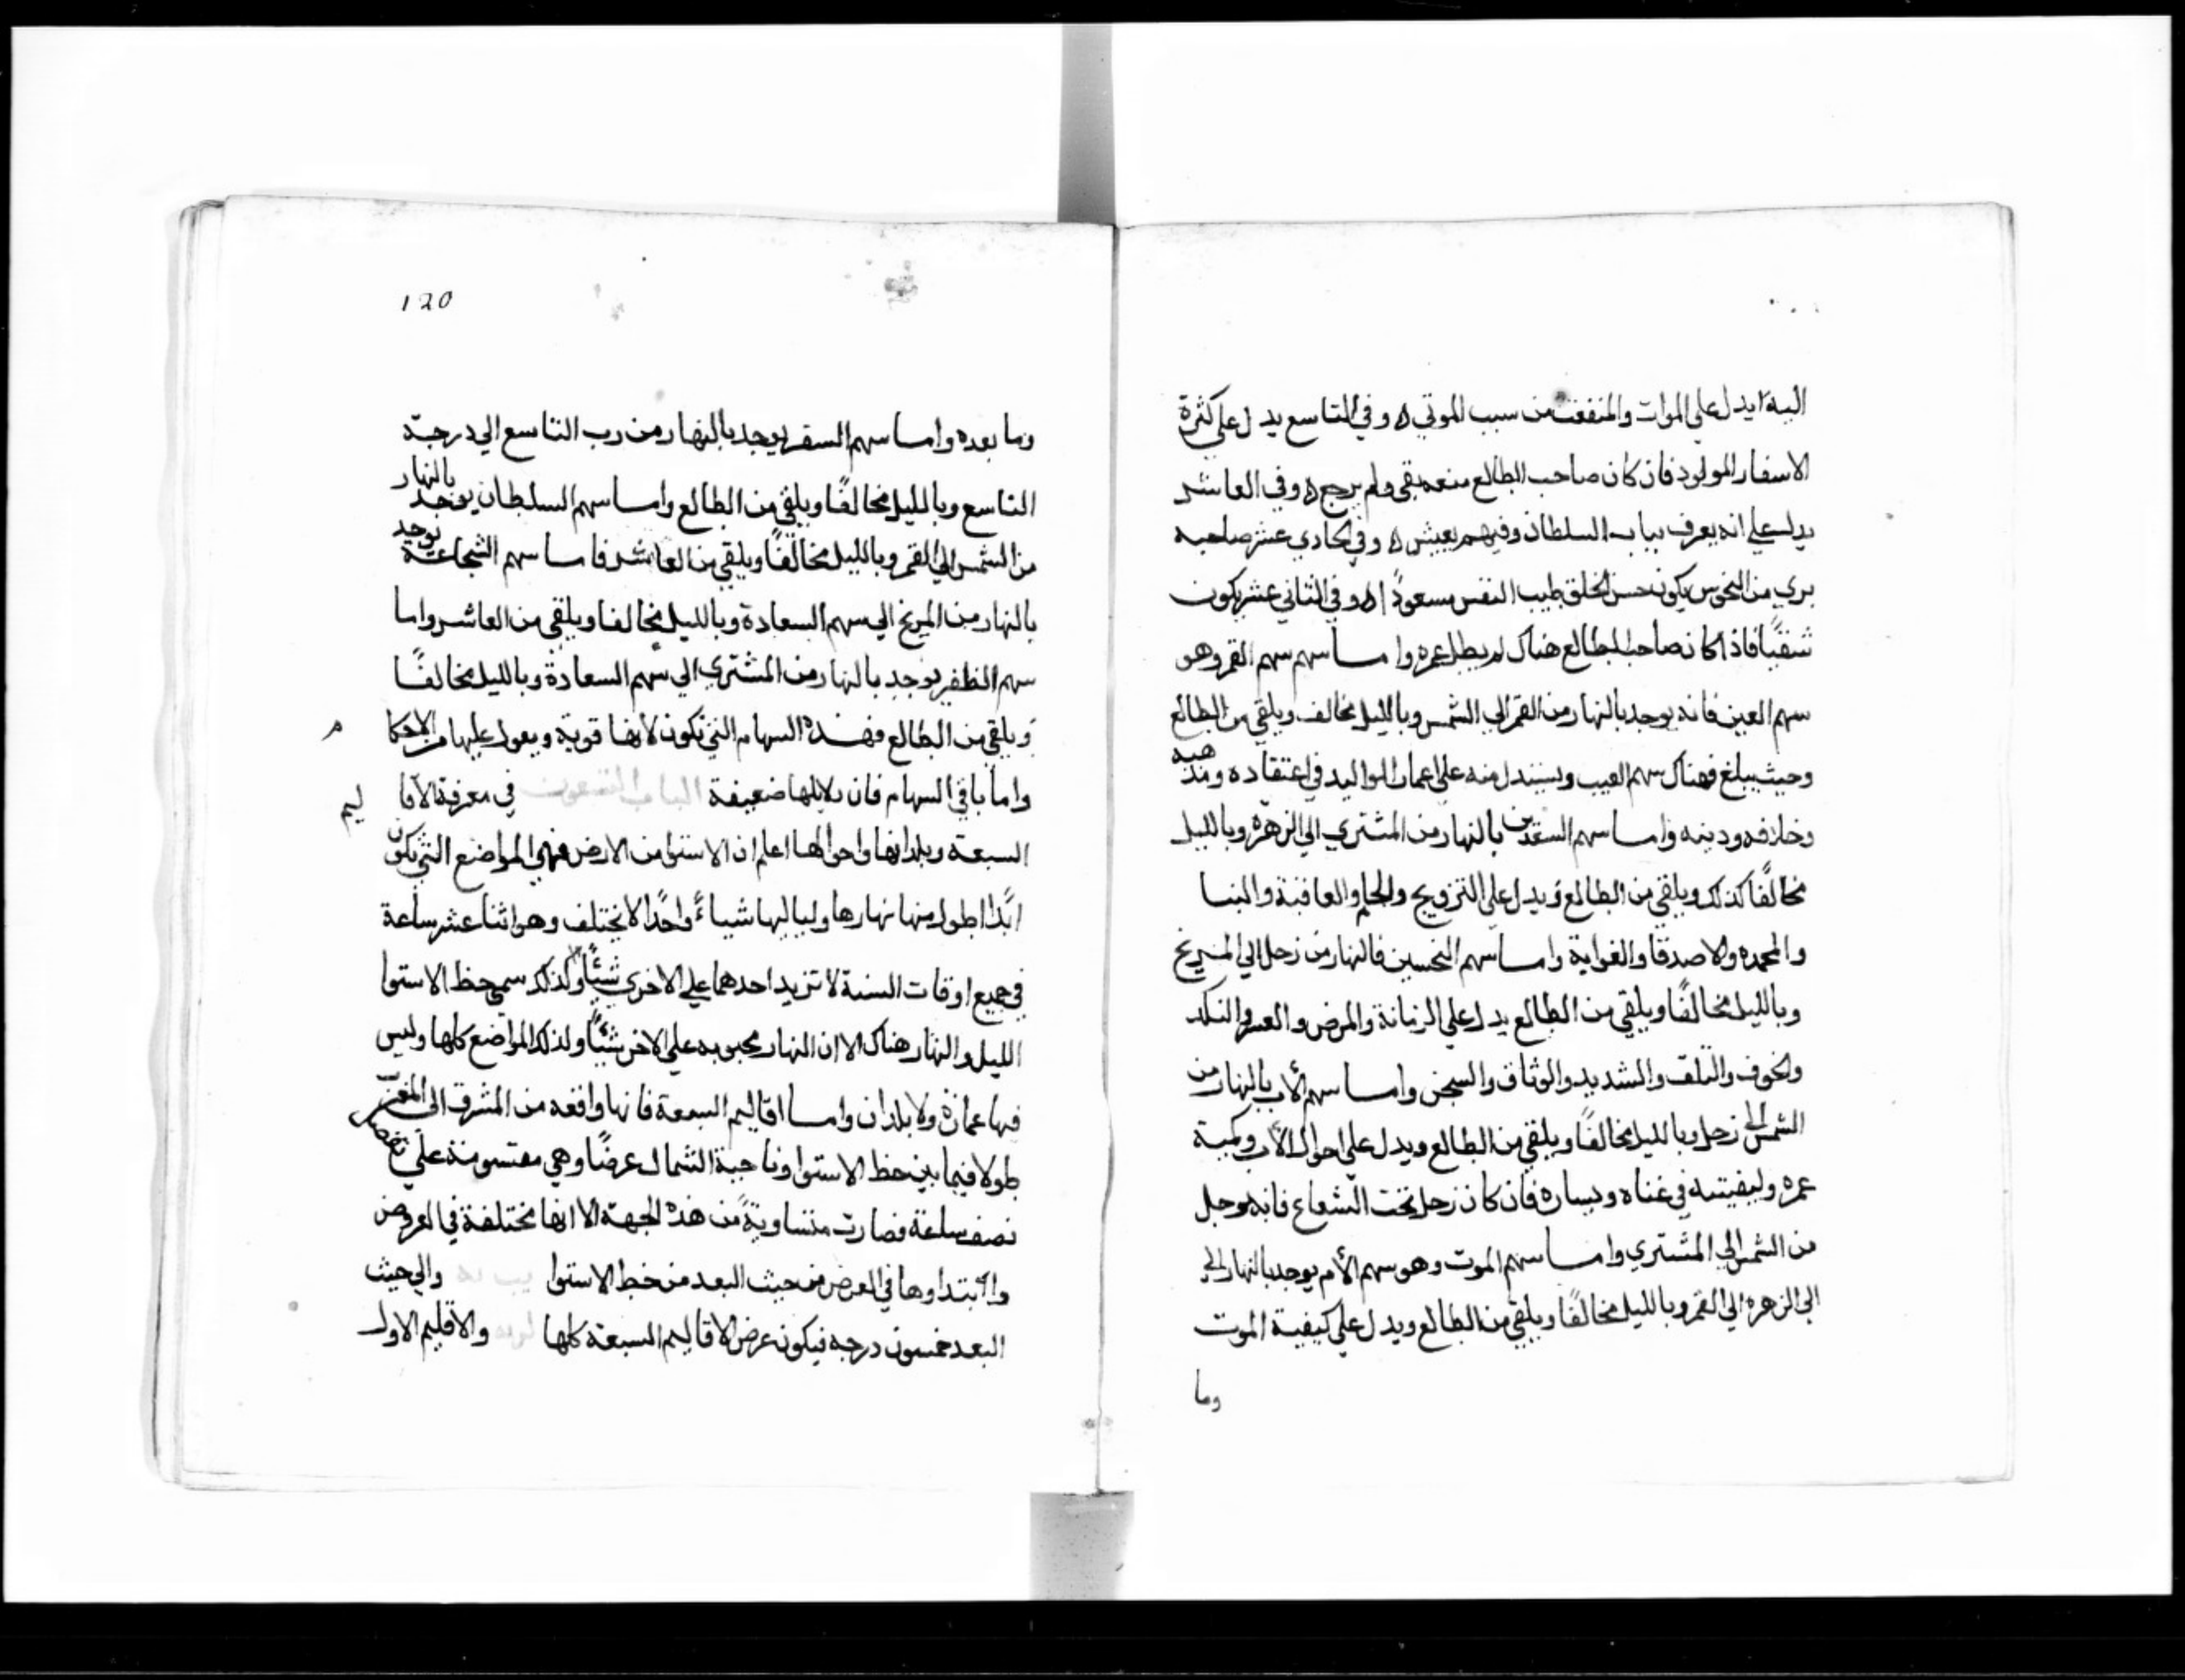 اليه ايدل علي الموات والمنفعت من سبب الموتي ه وفي التاسع يدل علي كثرة
الاسفار المولود فان كان صاحب الطالع منعه بقي ولم يرجع ه وفي العاشر
يدل علي انه يعرف بباب السلطان وفيهم يعيش ه وفي الحادي عشر صاحبه
بري من النحوس يكون حسن الخلق طيب النفس مسعودًا ه وفي الثاني عشر يكون
شقيًا فاذا كان صاحب الطالع هناك لم يطل عمره واما سهم سهم القمر وهو
سهم العين فانه يوجد بالنهار من القمر الي الشمس وبالليل مخالف ويلقي من الطالع
وحيث يبلغ فهناك سهم الغيب ويستدل منه علي اعمار المواليد في اعتقاده ومذهبه
وخلافه ودينه واما سهم السعدين بالنهار من المشتري الي الزهره وبالليل
مخالفًا كذلك ويلقي من الطالع ويدل علي التزويج والحلم والعافية والبنا
والمحمده والاصدقا والغراية واما سهم النحسين فالنهار من زحل الي المريخ
وبالليل مخالفًا ويلقي من الطالع يدل علي الزمانة والمرض والعسر والنكد
والخوف والتلف والشديد والوثاق والسجن واما سهم الأب بالنهار من
الشمس الي زحل وبالليل مخالفًا ويلقي من الطالع ويدل علي احوال الأب وكمية
عمره وكيفيته في غناه ويساره فان كان زحل تحت الشعاع فانه يوجل
من الشمس الي المشتري واما سهم الموت وهو سهم الأم يوجد بالنهار الي
الي الزهره الي القمر وبالليل مخالفًا ويلقي من الطالع ويدل علي كيفية الموت
وما
120
وما بعده واما سهم السفر يوجد بالنهار من رب التاسع الي درجة
التاسع وبالليل مخالفًا ويلقي من الطالع واما سهم السلطان يوجد بالنهار
من الشمس الي القمر وبالليل مخالفًا ويلقي من العاشر فاما سهم الشجاعة يوجد
بالنهار من المريخ الي سهم السعادة وبالليل مخالفا ويلقي من العاشر واما
سهم الظفر يوجد بالنهار من المشتري الي سهم السعادة وبالليل مخالفًا
ويلقي من الطالع فهذه السهام التي تكون لانها قوية ويعول عليها من الاحكام
واما باقي السهام فان دلايلها ضعيفة الباب التسعون في معرفة الاقاليم
السبعة وبلدانها واحوالها اعلم ان الاستوا من الارض فهي المواضع التي يكون
ابدًا طول منها نهارها ولياليها شياءً واحدًا لا يختلف وهو اثنا عشر ساعة
في جميع اوقات السنة لا تزيد احدهما علي الاخري شئًا ولذلك سمي خط الاستوا
الليل والنهار هناك الا ان النهار محبوبه علي الاخر شئًا ولذلك المواضع كلها وليس
فيها عمارة ولا بلدان واما اقاليم السبعة فانها واقعه من المشرق الي المغرب
طولا فيما بين خط الاستوا وناحية الشمال عرضًا وهي مقتسومنة علي
نصف ساعة فصارت متساوية من هذه الجهة الا انها مختلفة في العروض
وابتداوها في العرض من حيث البعد من خط الاستوا والي حيث
البعد خمسون درجه فيكون عرض الاقاليم السبعة كلها والاقليم الاول